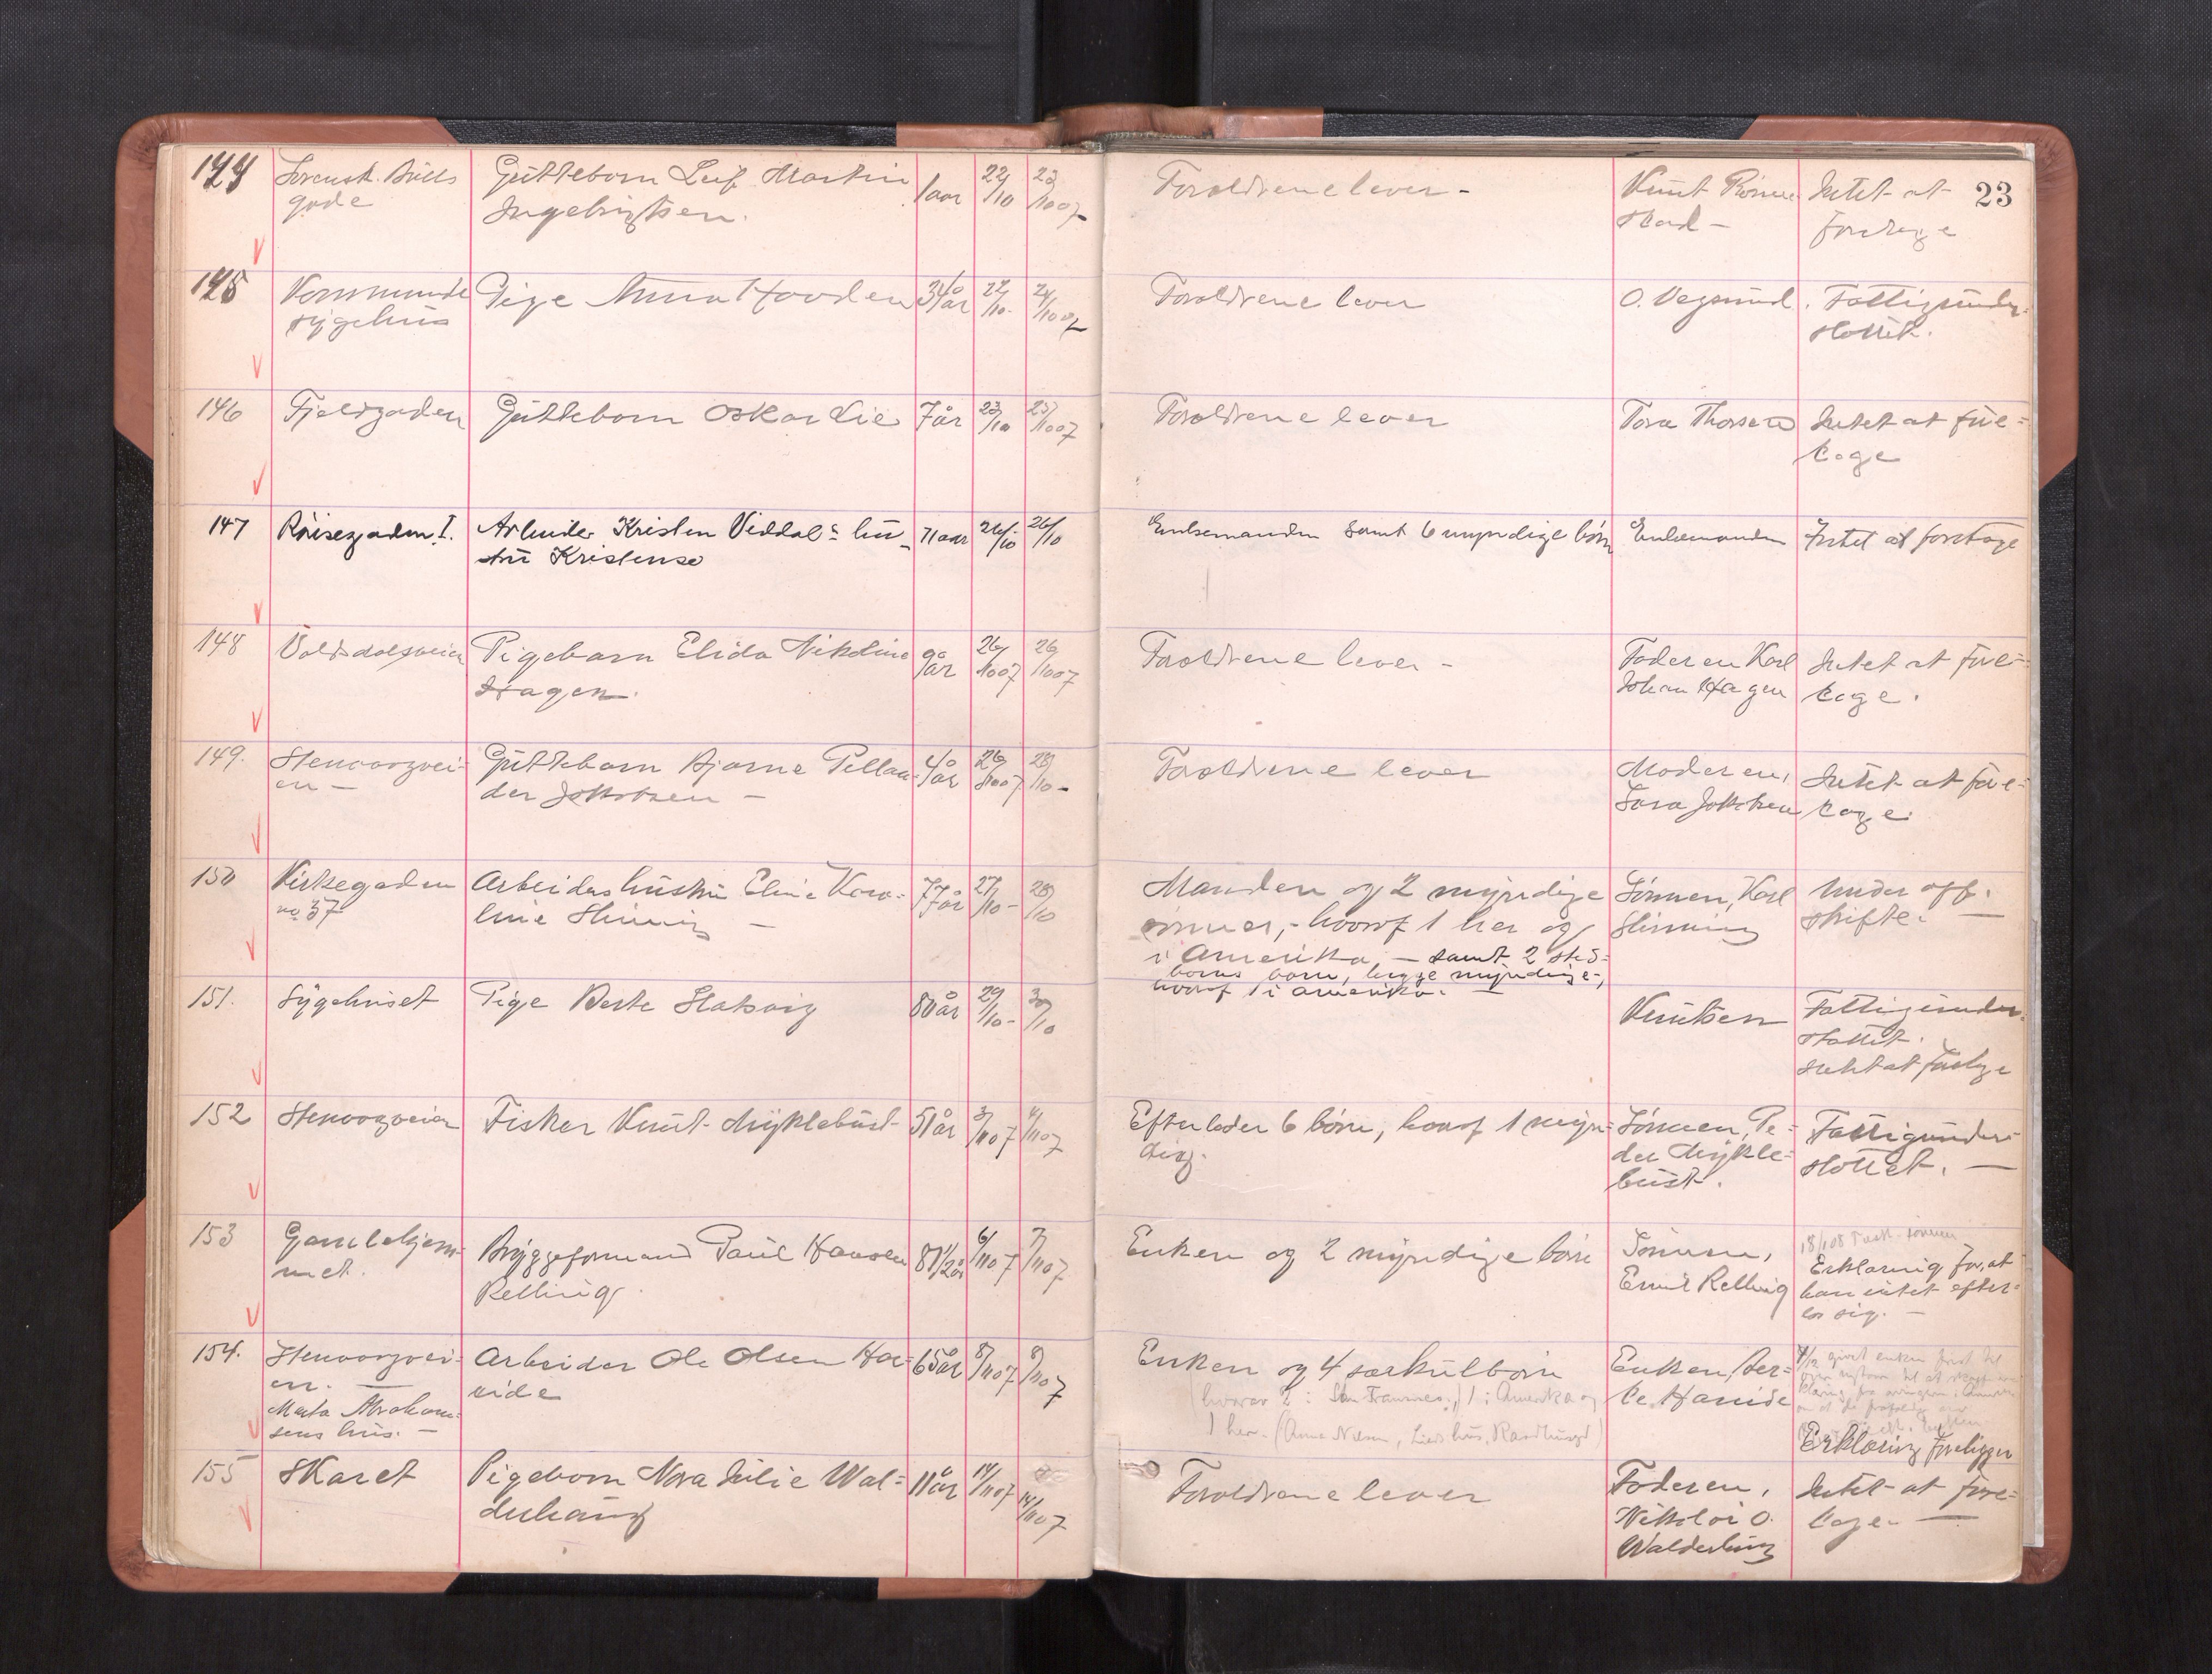 23
144
Gutteborn Leif Martin
Ingebrigtsen.
1 aar
22/10
23/10 07
Forældrene lever -
Knut
stad -
Intet at
foretage
145
Kommunde
sygehus
Pige Anna Hovden
24/10 07
Forældrene lever
O. Vegsund.
Fattigunder-
støttet.
146
Fjeldgaden
Gutteborn Oskar Lie
7 år
23/10
25/10 07
Forældrene lever
Tora Thorsen
Intet at fore-
tage
147
Røisegaden I.
Arbeider Kristen Viddals hu-
stru Kristense
71 aar
26/10
26/10
Enkemanden samt 6 myndige børn
Enkemanden
Intet at foretage
148
Pigebarn Elida Nikoline
Hagen.
9 år
26/10 07
26/10 07
Forældrene lever -
Faderen Karl
Johan Hagen
Intet at fore-
tage.
149.
Stenvogvei-
en -
Gutteborn Bjarne Pellan-
der Jakobsen -
4 år
26/10 07
28/10 -
Forældrene lever
Moderen,
Sara Jakobsen
Intet at fore-
tage.
150
Kirkegaden
no 37
Arbeiders hustru Eline Karo-
line Slinning -
77 år
27/10 -
28/10
Manden og 2 myndige
sønner, - hvoraf 1 her og
i Amerika, - samt 2 sted-
børns børn, begge myndige,
hvoraf 1 i Amerika. -
Sønnen, Karl
Slinning
Under off.
skifte. -
151.
Sygehuset
Pige Berte Slatsvig
80 år
29/10 -
30/10
Knutsen
Fattigunder-
støttet.
Intet at foretage
152
Stenvogveien
Fisker Knut Myklebust
51 år
3/11 07
4/11 07
Efterlader 6 børn, hvoraf 1 myn-
dig.
Sønnen, Pe-
der Mykle-
bust.
Fattigunder-
støttet. -
153
Gamlehjem-
met.
Bryggeformand Paul Hansen
Relling
81 1/2 år
6/11 07
7/11 07
Enken og 2 myndige børn
Sønnen,
Emil Relling
18/1 08
Erklæring for, at
han intet efter-
lod sig. -
154.
Stenvogvei-
en. -
Marta Abraham-
sens hus. -
Arbeider Ole Olsen Ha-
reide
65 år
8/11 07
9/11 07
Enken og 4 særkulbørn
(hvorav 2 i San Fransisco, 1 i Amerika og
1 her - (Anna Nilsen, Lies hus, Raadhusgd)
Enken, Ber-
te Hareide
Erklæring foreligger
155
Skaret
Pigeborn Nora Julie Wal-
derhaug
11 år
14/11 07
14/11 07
Forældrene lever
Faderen,
Nikolai O.
Walderhaug
Intet at fore-
tage. -